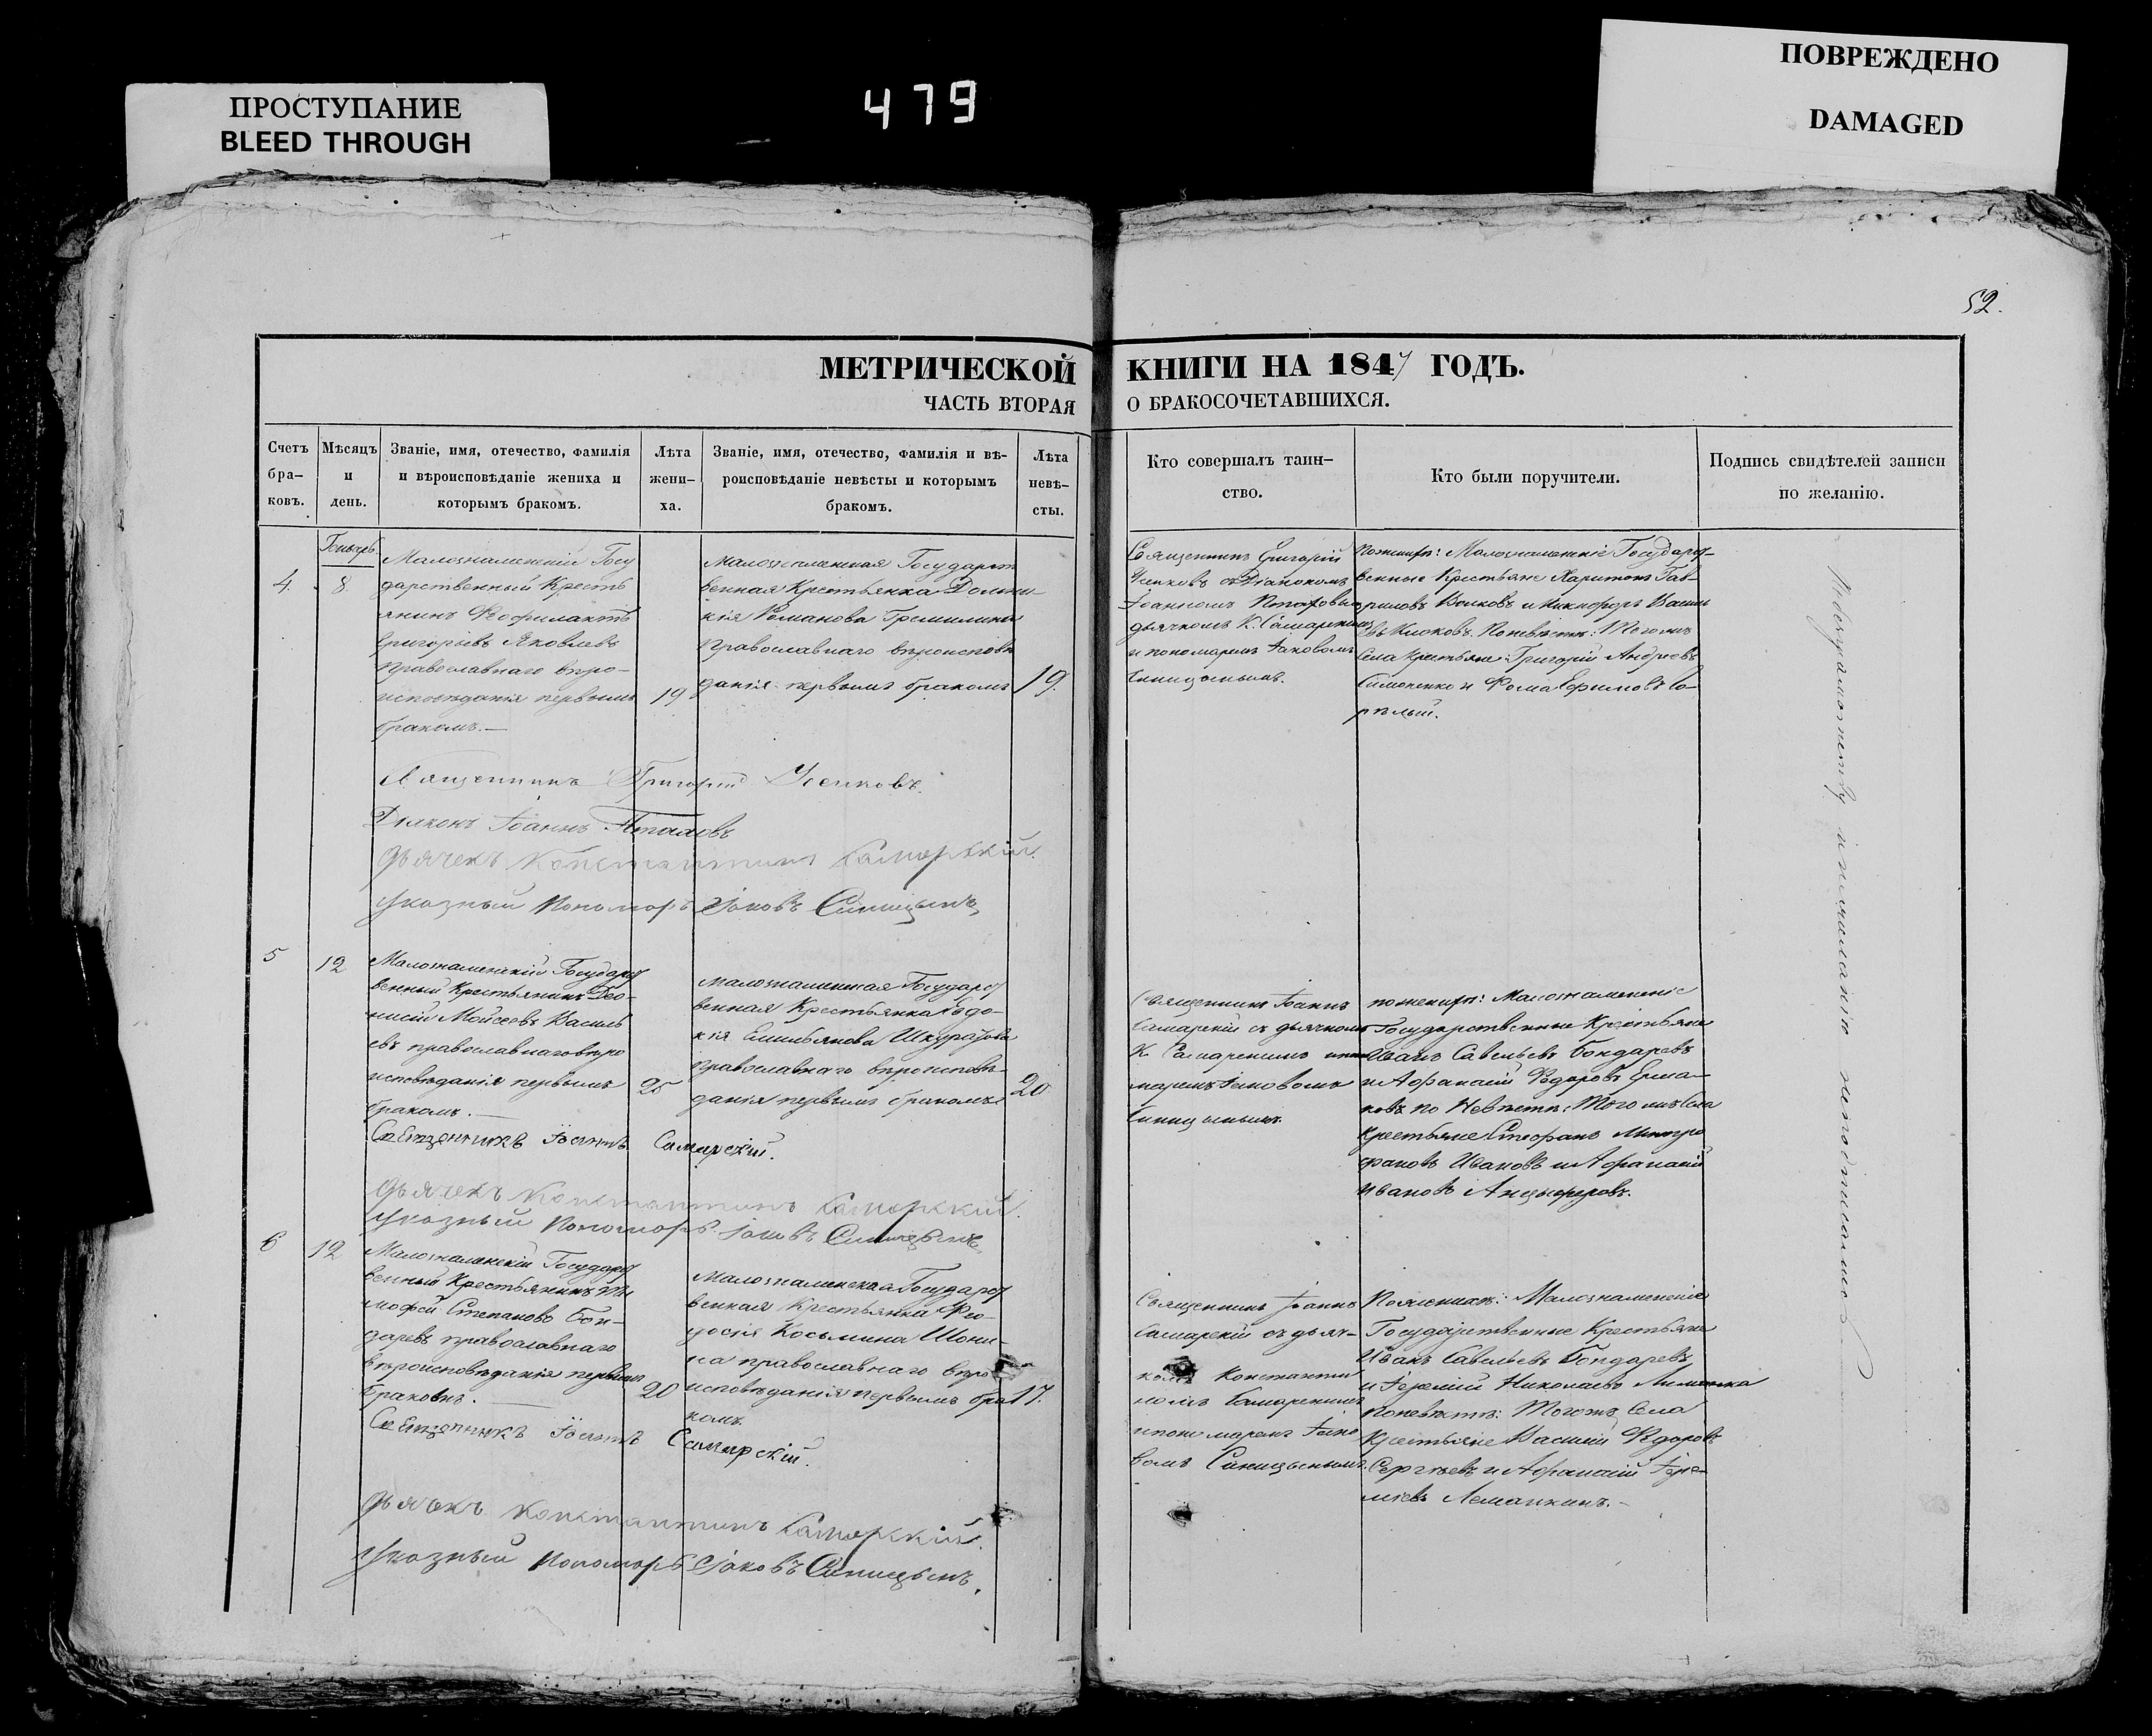 ПРОСТУПАНИЕ
BLEED THROUGH
479
ПОВРЕЖДЕНО
DAMAGED
52.
МЕТРИЧЕСКОЙ КНИГИ НА 1847 ГОДЪ.
ЧАСТЬ ВТОРАЯ О БРАКОСОЧЕТАВШИХСЯ.
Счетъ бра-ковъ.
Мѣсяцъ и день.
Званіе, имя, отечество, фамилія и вѣроисповѣданіе жениха и которымъ бракомъ.
Лѣта жени-ха.
Званіе, имя, отечество, фамилія и вѣ-роисповѣданіе невѣсты и которымъ бракомъ.
Лѣта невѣ-сты.
Кто совершалъ таин-ство.
Кто были поручители.
Подпись свидѣтелей записи по желанію.
Генварь.
4.
8.
Малознаменскій Госу
дарственный Кресть
янинъ Феофилактъ
Григорьевъ Яковлевъ
Православнаго вѣро-
исповѣданія первымъ
бракомъ.—
19
Малознаменская Государст
венная Крестьянка
Романова
Православнаго вѣроисповѣ
данія первымъ бракомъ
19.
Священникъ Григорій
Усенковъ съ Діакономъ
Іоанномъ
дьячкомъ К. Самарскимъ
и пономаремъ Іаковомъ
Синицынымъ.
По женихѣ: Малознаменскіе Государст-
венные Крестьяне Харитонъ Гав-
риловъ Волковъ и Никифоръ Василь
евъ Клюковъ. По невѣстѣ: Того жъ
Села Крестьяне: Григорій Андреевъ
Симоненко и Фома Ефимовъ Го-
рѣлый.
Священникъ Григорій Усенковъ.
Діаконъ Іоаннъ
Дьячекъ Константинъ Самарскій.
Указный Пономарь Іаковъ Синицынъ.
5
12
Малознаменскій Государст
венный Крестьянинъ Део-
нисій Мойсеевъ Василь
евъ православнаго вѣро
исповѣданія первымъ
бракомъ.—
25
Малознаменская Государст
венная Крестьянка Евдо-
кія Емельянова Шкуратова
Православнаго вѣроисповѣ-
данія первымъ бракомъ
20
Священникъ Іоаннъ
Самарскій съ дьячкомъ
К. Самарскимъ и поно
маремъ Іаковомъ
Синицынымъ.
По женихѣ: Малознаменскіе
Государственные Крестьяне
Иванъ Савельевъ Бондаревъ
и Афанасій Федоровъ Ерма-
ковъ по Невѣстѣ: Того жъ Села
Крестьяне Стефанъ Митро
фановъ Ивановъ и Афанасій
Ивановъ Анцыферовъ.
Священникъ Іоаннъ Самарскій.
Дьячекъ Константинъ Самарскій.
Указный Пономарь Іаковъ Синицынъ.
6
12
Малознаменскій Государст
венный Крестьянинъ Ти
мофей Степановъ Бон-
даревъ православнаго
вѣроисповѣданія первымъ
бракомъ.—
20
Малознаменская Государст
венная Крестьянка Фео-
досія Косьмина Шони-
на православнаго вѣро
исповѣданія первымъ бра
комъ.
17.
Священникъ Іоаннъ
Самарскій съ дьяч-
комъ Константи
номъ Самарскимъ
и пономаремъ Іако
вомъ Синицынымъ.
По женихѣ: Малознаменскіе
Государственные Крестьяне
Иванъ Савельевъ Бондаревъ
и Іеремій Николаевъ
По невѣстѣ: Того жъ Села
Крестьяне Василій Федоровъ
Сергѣевъ и Афанасій Іере-
міевъ Леманкинъ.—
Священникъ Іоаннъ Самарскій.
Дьячекъ Константинъ Самарскій.
Указный Пономарь Іаковъ Синицынъ.